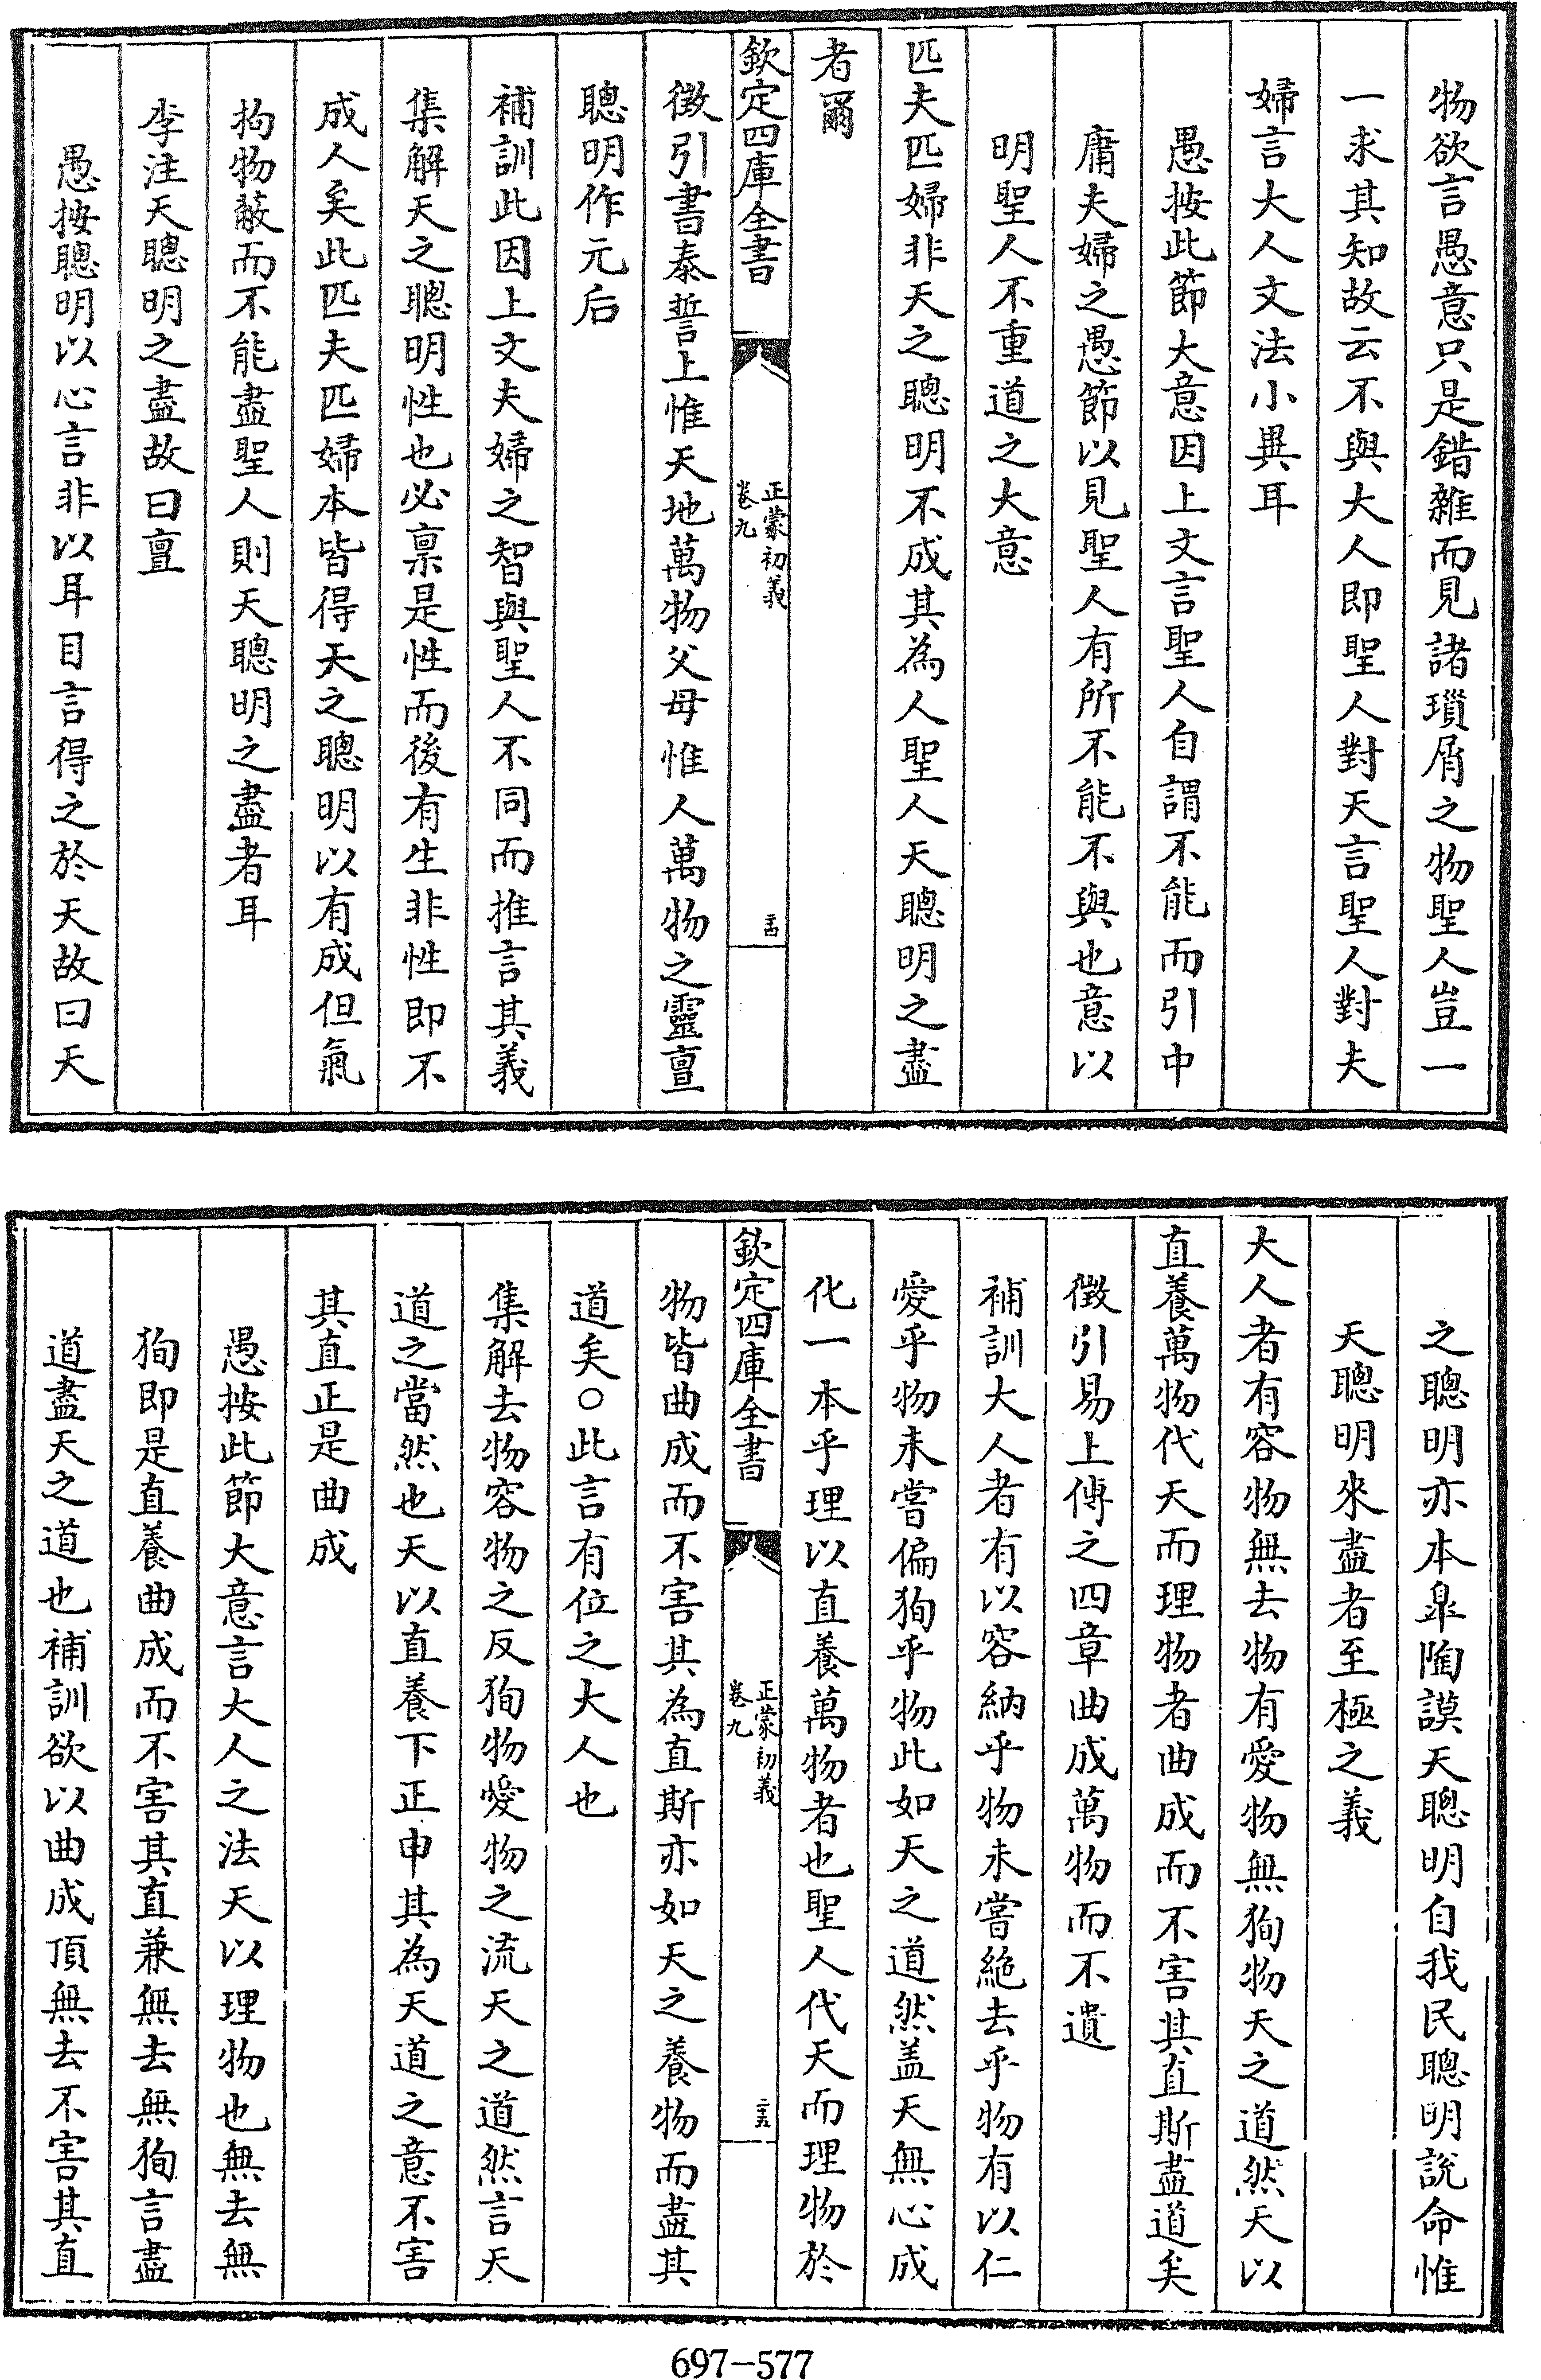 物欲言愚意只是錯雜而見諸瑣屑之物聖人豈一
一求其知故云不與大人即聖人對天言聖人對夫
婦言大人文法小異耳
愚按此節大意因上文言聖人自謂不能而引中
庸夫婦之愚節以見聖人有所不能不與也意以
明聖人不重道之大意
匹夫匹婦非天之聰明不成其為人聖人天聰明之盡
者爾
欽定四庫全書
正蒙初義
卷九
二十四
徴引書泰誓上惟天地萬物父母惟人萬物之靈亶
聰明作元后
補訓此因上文夫婦之智與聖人不同而推言其義
集解天之聰明性也必禀是性而後有生非性即不
成人矣此匹夫匹婦本皆得天之聰明以有成但氣
拘物蔽而不能盡聖人則天聰明之盡者耳
李注天聰明之盡故曰亶
愚按聰明以心言非以耳目言得之於天故曰天
之聰明亦本臯陶謨天聰明自我民聰明說命惟
天聰明來盡者至極之義
大人者有容物無去物有愛物無狥物天之道然天以
直養萬物代天而理物者曲成而不害其直斯盡道矣
徴引易上傳之四章曲成萬物而不遺
補訓大人者有以容納乎物未嘗絶去乎物有以仁
愛乎物未嘗偏狥乎物此如天之道然盖天無心成
化一本乎理以直養萬物者也聖人代天而理物於
欽定四庫全書
正蒙初義
卷九
二十五
物皆曲成而不害其為直斯亦如天之養物而盡其
道矣○此言有位之大人也
集解去物容物之反狥物愛物之流天之道然言天
道之當然也天以直養下正申其為天道之意不害
其直正是曲成
愚按此節大意言大人之法天以理物也無去無
狥即是直養曲成而不害其直兼無去無狥言盡
道盡天之道也補訓欲以曲成頂無去不害其直
697-577